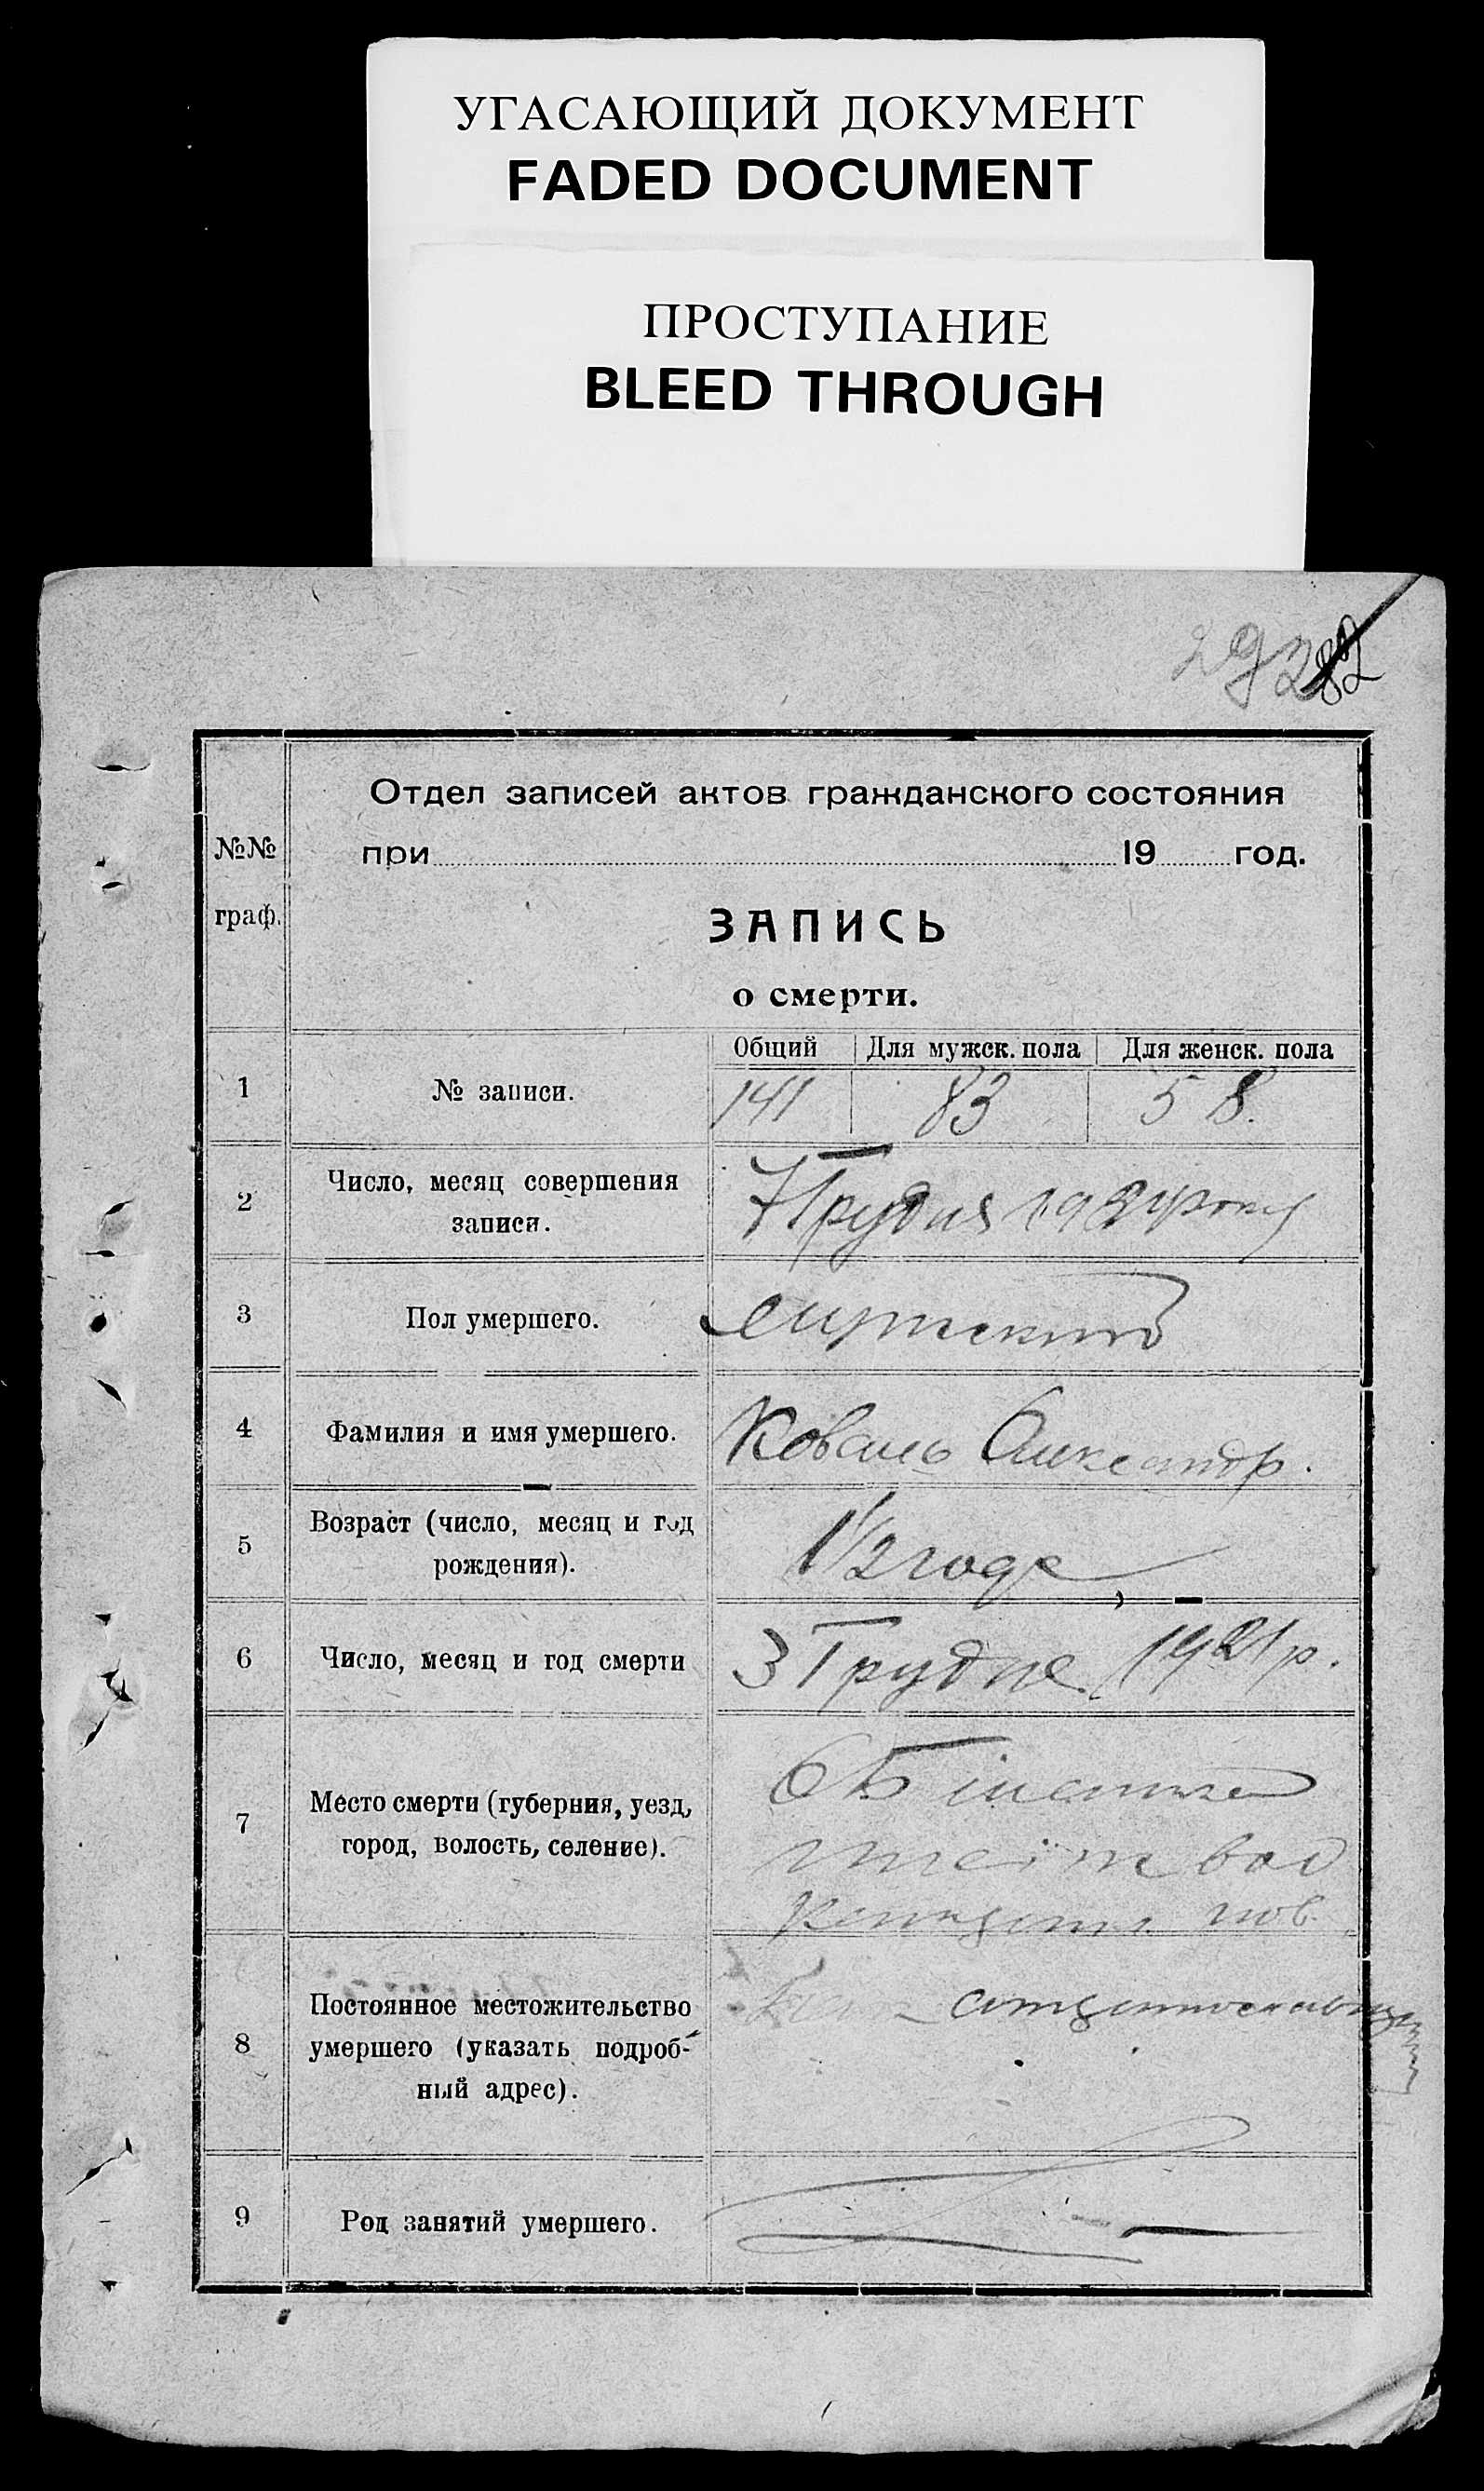 УГАСАЮЩИЙ ДОКУМЕНТ
FADED DOCUMENT
ПРОСТУПАНИЕ
BLEED THROUGH
№№
граф.
Отдел записей актов гражданского состояния
при 19 год.
ЗАПИСЬ
о смерти.
Общий Для мужск. пола Для женск. пола
1 № записи. 141 83 58.
2 Число, месяц совершения
записи. 7 Грудня 1921 року
3 Пол умершего.
4 Фамилия и имя умершего. Коваль Олександр.
5 Возраст (число, месяц и год
рождения). 1 1/2 года
6 Число, месяц и год смерти 3 Грудня 1921 р.
7 Место смерти (губерния, уезд,
город, волость, селение).
пов.
8 Постоянное местожительство
умершего (указать подроб-
ный адрес).
9 Род занятий умершего. —